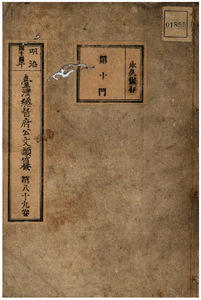 01855
永久保存
第十門
明治
臺灣總督府公文類纂 八十九卷